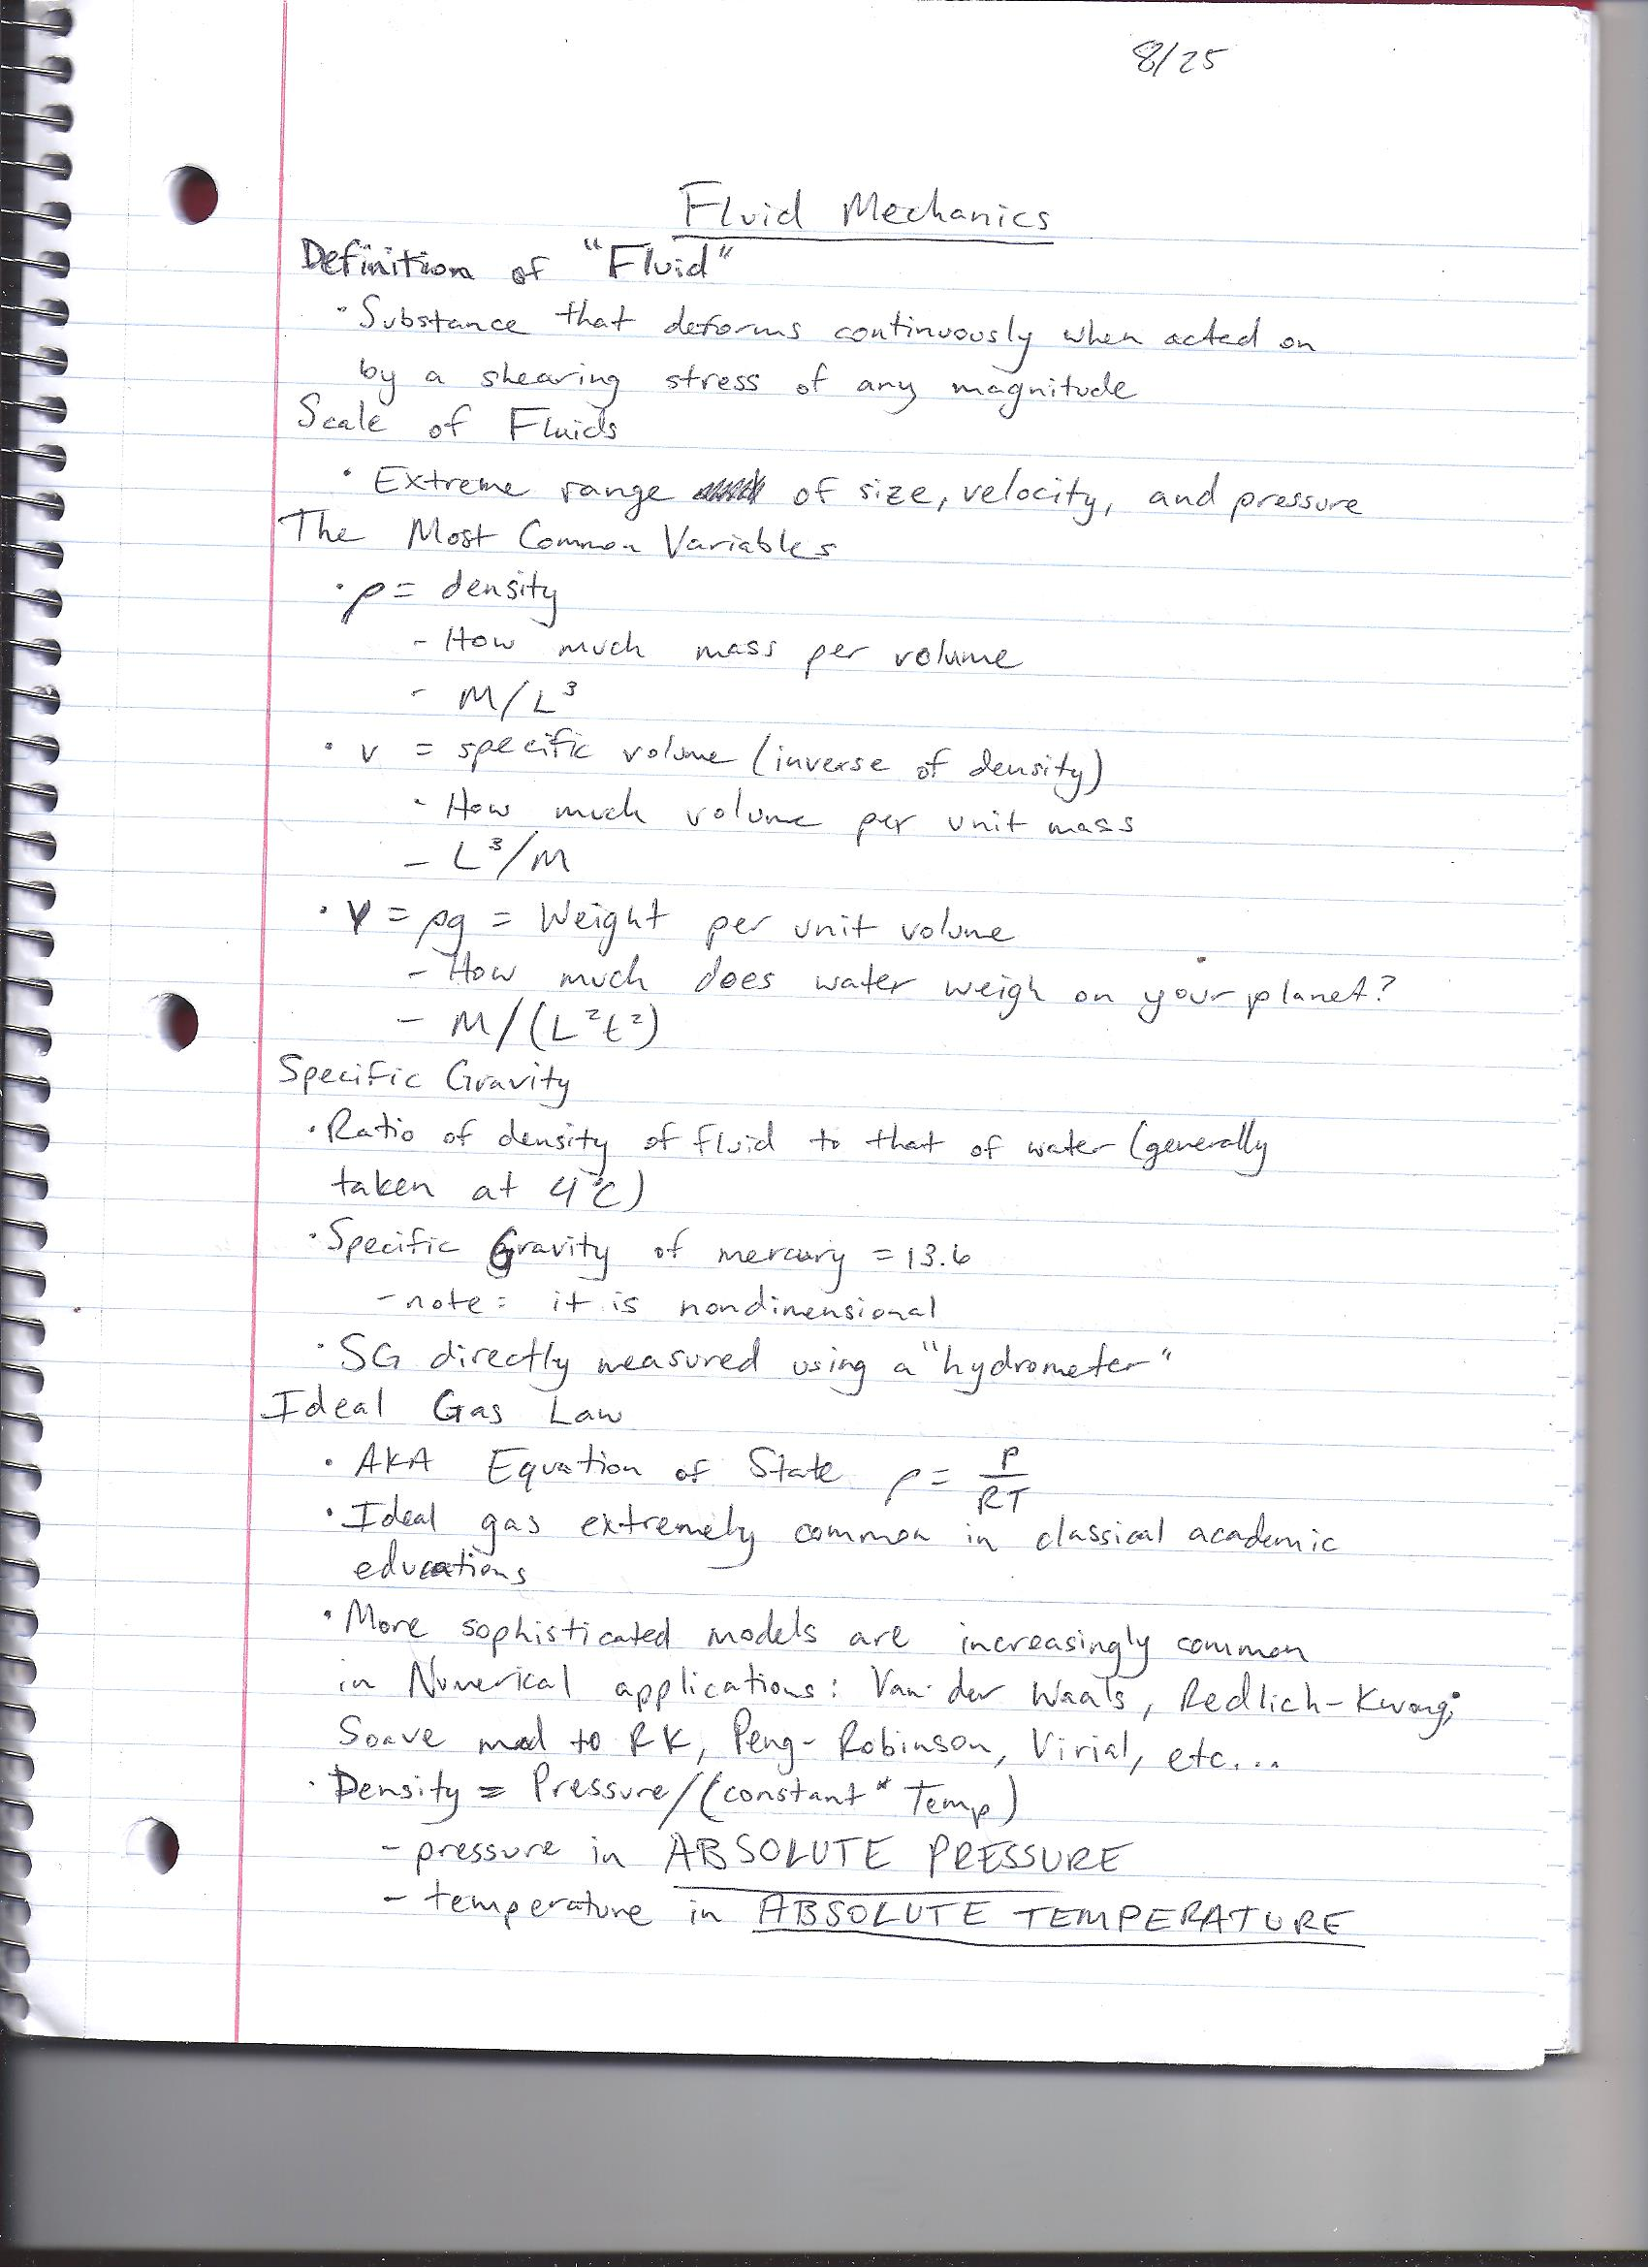 8/25
Fluid Mechanics
Definition of "Fluid"
· Substance that deforms continuously when acted on
by a shearing stress of any magnitude
Scale of Fluids
· Extreme range of size, velocity, and pressure
The Most Common Variables
· ρ = density
- How much mass per volume
- M/L³
· v = specific volume (inverse of density)
· How much volume per unit mass
- L³/M
· γ = ρg = Weight per unit volume
- How much does water weigh on your planet?
- M/(L²t²)
Specific Gravity
· Ratio of density of fluid to that of water (generally
taken at 4°C)
· Specific Gravity of mercury = 13.6
- note: it is nondimensional
· SG directly measured using a "hydrometer"
Ideal Gas Law
· AKA Equation of State ρ = P/RT
· Ideal gas extremely common in classical academic
educations
· More sophisticated models are increasingly common
in Numerical applications: Van der Waals, Redlich-Kwong,
Soave mod to RK, Peng-Robinson, Virial, etc...
· Density = Pressure/(constant * Temp)
- pressure in ABSOLUTE PRESSURE
- temperature in ABSOLUTE TEMPERATURE